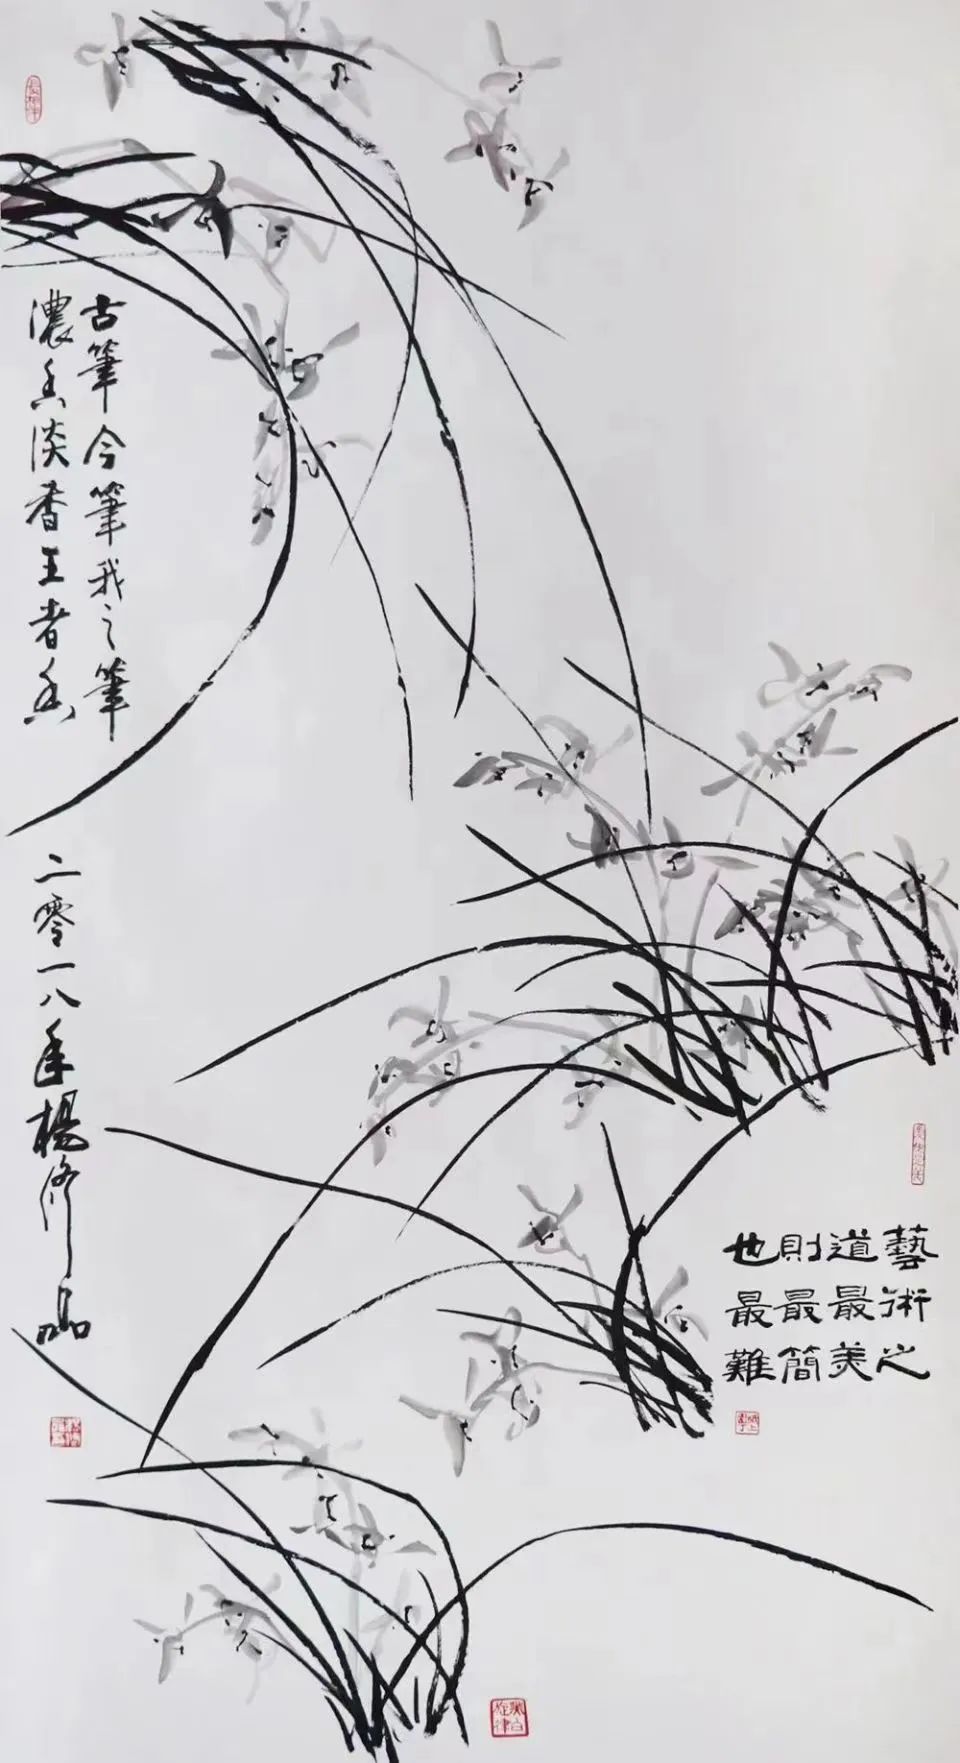 古筆今筆我之筆
濃香淡香王者香
二零一八年楊修
藝術之
道最美
則最簡
也最難
黑白
旋律